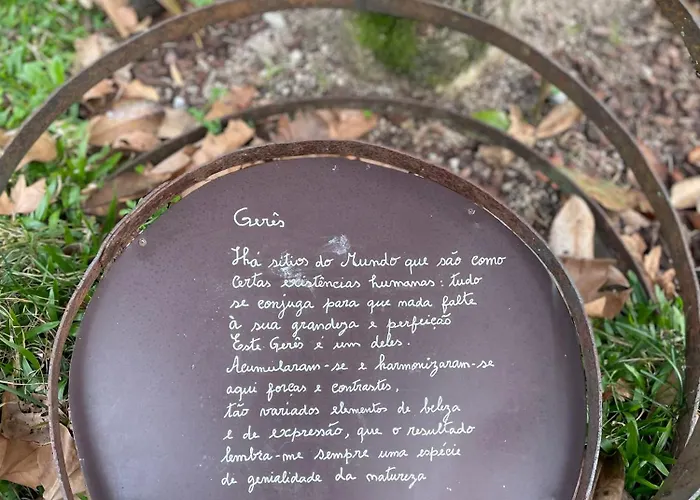 Gerês
Há sítios do Mundo que são como
certas existências humanas: tudo
se conjuga para que nada falte
à sua grandeza e perfeição
Este Gerês é um deles.
Acumularam-se e harmonizaram-se
aqui forças e contrastes,
tão variados elementos de beleza
e de expressão, que o resultado
lembra-me sempre uma espécie
de genialidade da natureza